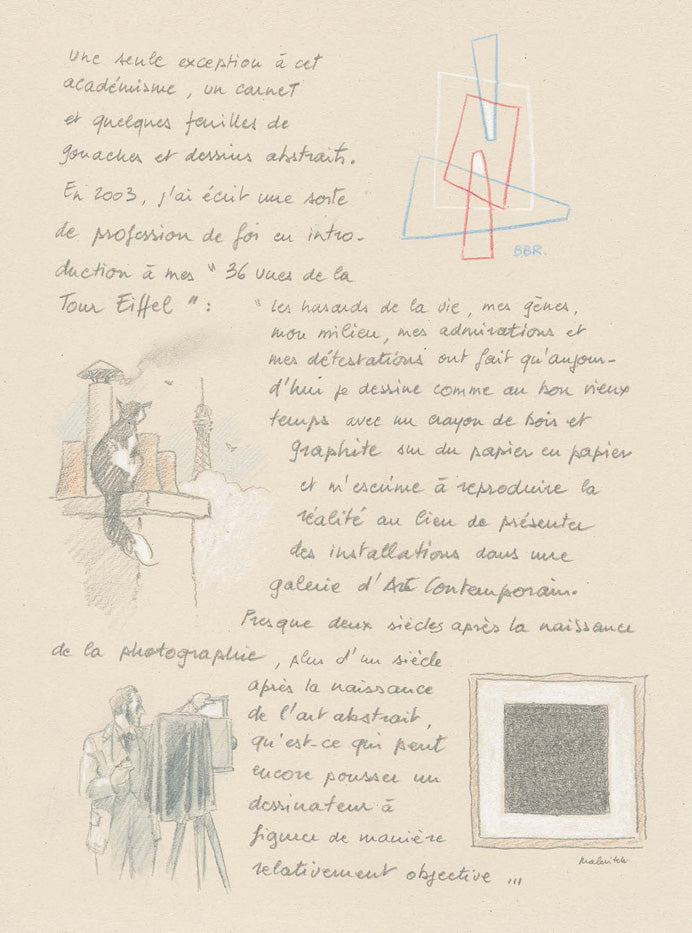 Une seule exception à cet
académisme, un carnet
et quelques feuilles de
gouaches et dessins abstraits.
En 2003, j'ai écrit une sorte
de profession de foi en intro-
duction à mes " 36 vues de la
Tour Eiffel " :
BBR.
" Les hasards de la vie, mes gênes,
mon milieu, mes admirations et
mes détestations ont fait qu'aujour-
d'hui je dessine comme au bon vieux
temps avec un crayon de bois et
graphite sur du papier en papier
et m'escrime à reproduire la
réalité au lieu de présenter
des installations dans une
galerie d'Art Contemporain.
Presque deux siècles après la naissance
de la photographie, plus d'un siècle
après la naissance
de l'art abstrait,
qu'est-ce qui peut
encore pousser un
dessinateur à
figurer de manière
relativement objective ...
Malevitch